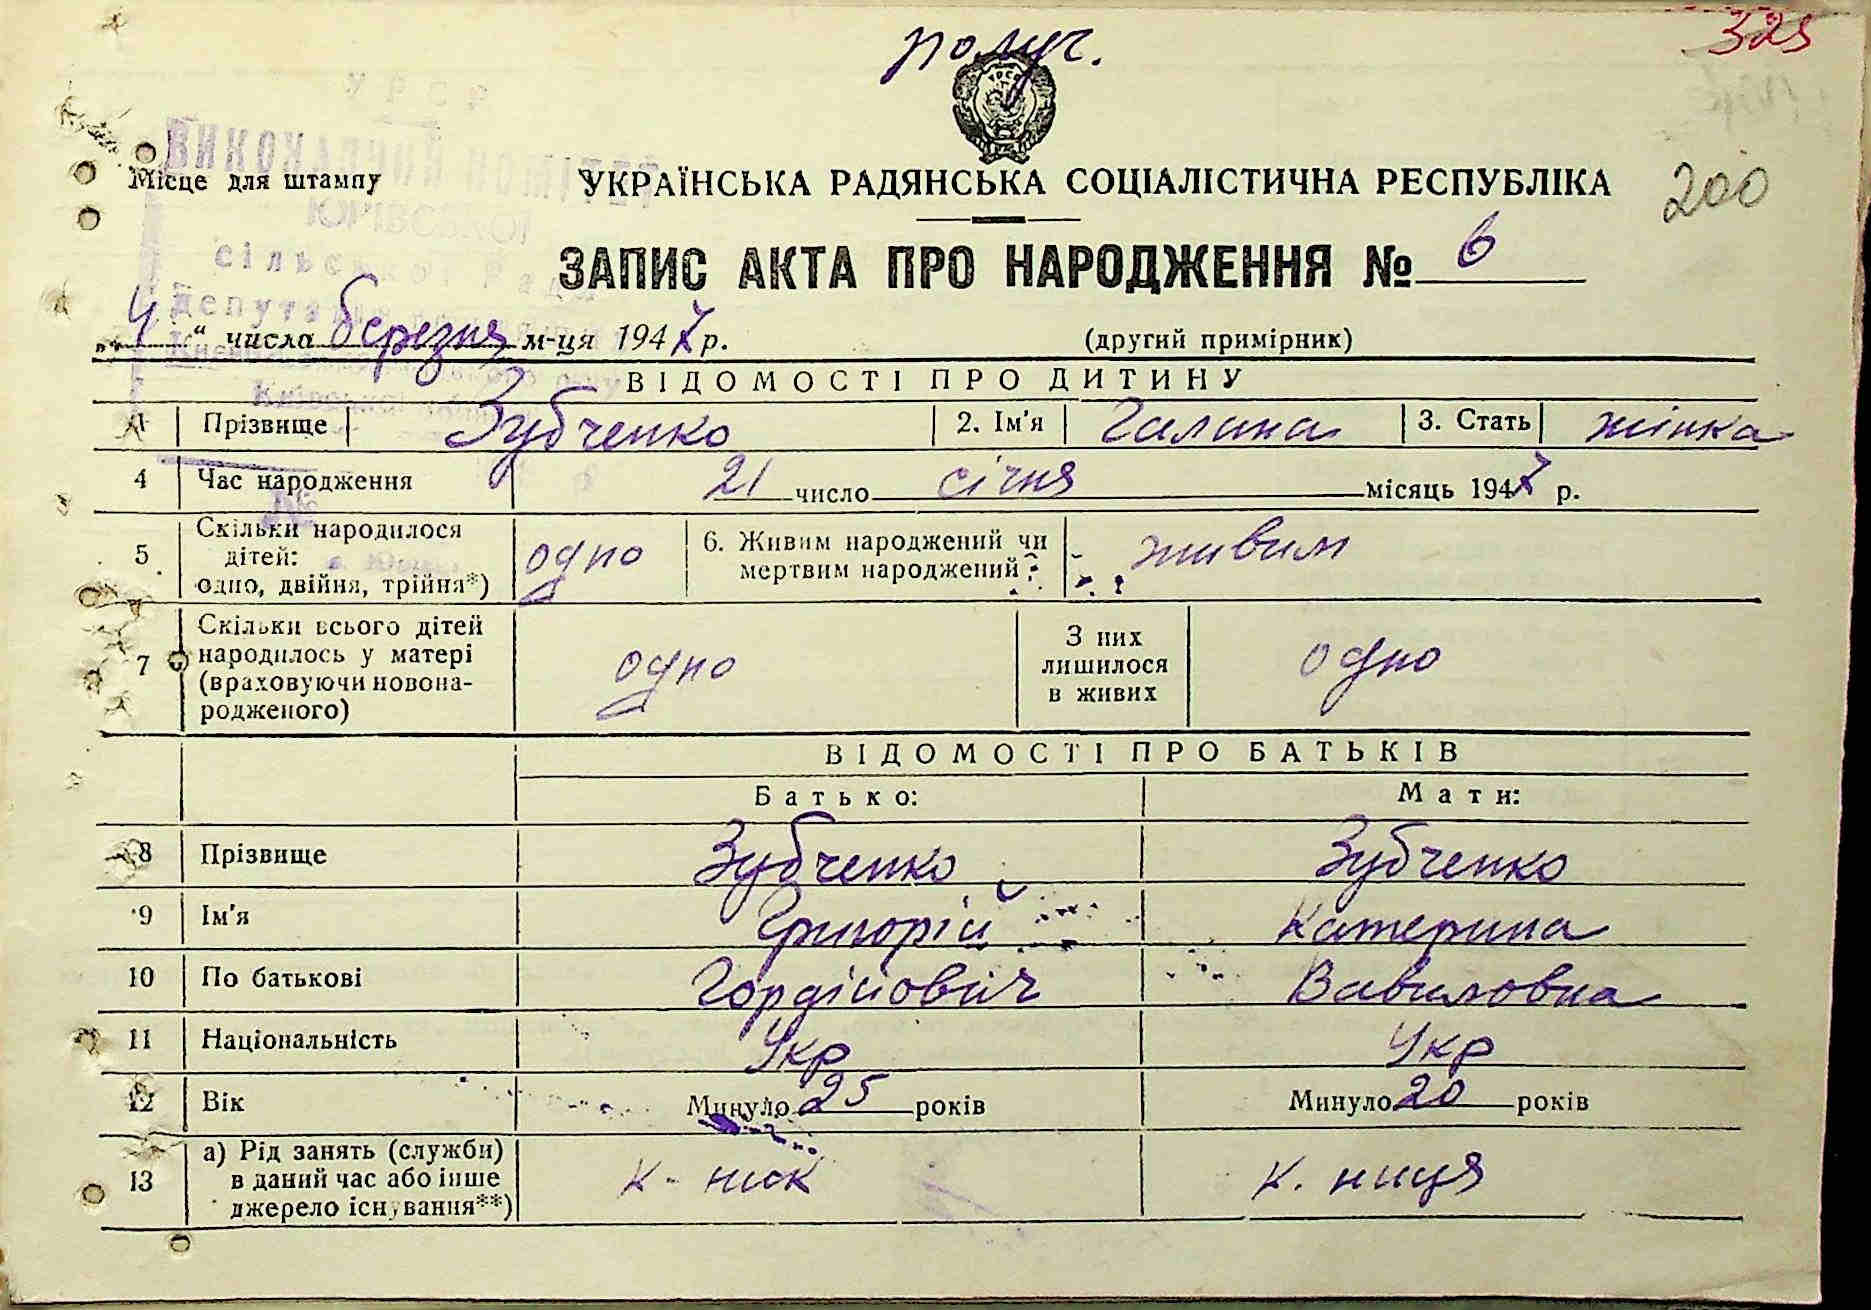 получ.
325
УРСР
200
Місце для штампу
УКРАЇНСЬКА РАДЯНСЬКА СОЦІАЛІСТИЧНА РЕСПУБЛІКА
ЗАПИС АКТА ПРО НАРОДЖЕННЯ № 6
сільської Ради
депутатів
„4“ числа березня м-ця 1947 р.
(другий примірник)
ВІДОМОСТІ ПРО ДИТИНУ
1 Прізвище Зубченко 2. Ім'я Галина 3. Стать жінка
4 Час народження 21 число січня місяць 1947 р.
№
5 Скільки народилося дітей: одно, двійня, трійня*) одно 6. Живим народжений чи мертвим народжений? живим
7 Скільки всього дітей народилось у матері (враховуючи новонародженого) одно З них лишилося в живих одно
ВІДОМОСТІ ПРО БАТЬКІВ
Батько: Мати:
8 Прізвище Зубченко Зубченко
9 Ім'я Григорій Катерина
10 По батькові Гордійович Вавиловна
11 Національність Укр Укр
12 Вік Минуло 25 років Минуло 20 років
13 а) Рід занять (служби) в даний час або інше джерело існування**) к-ник к. ниця